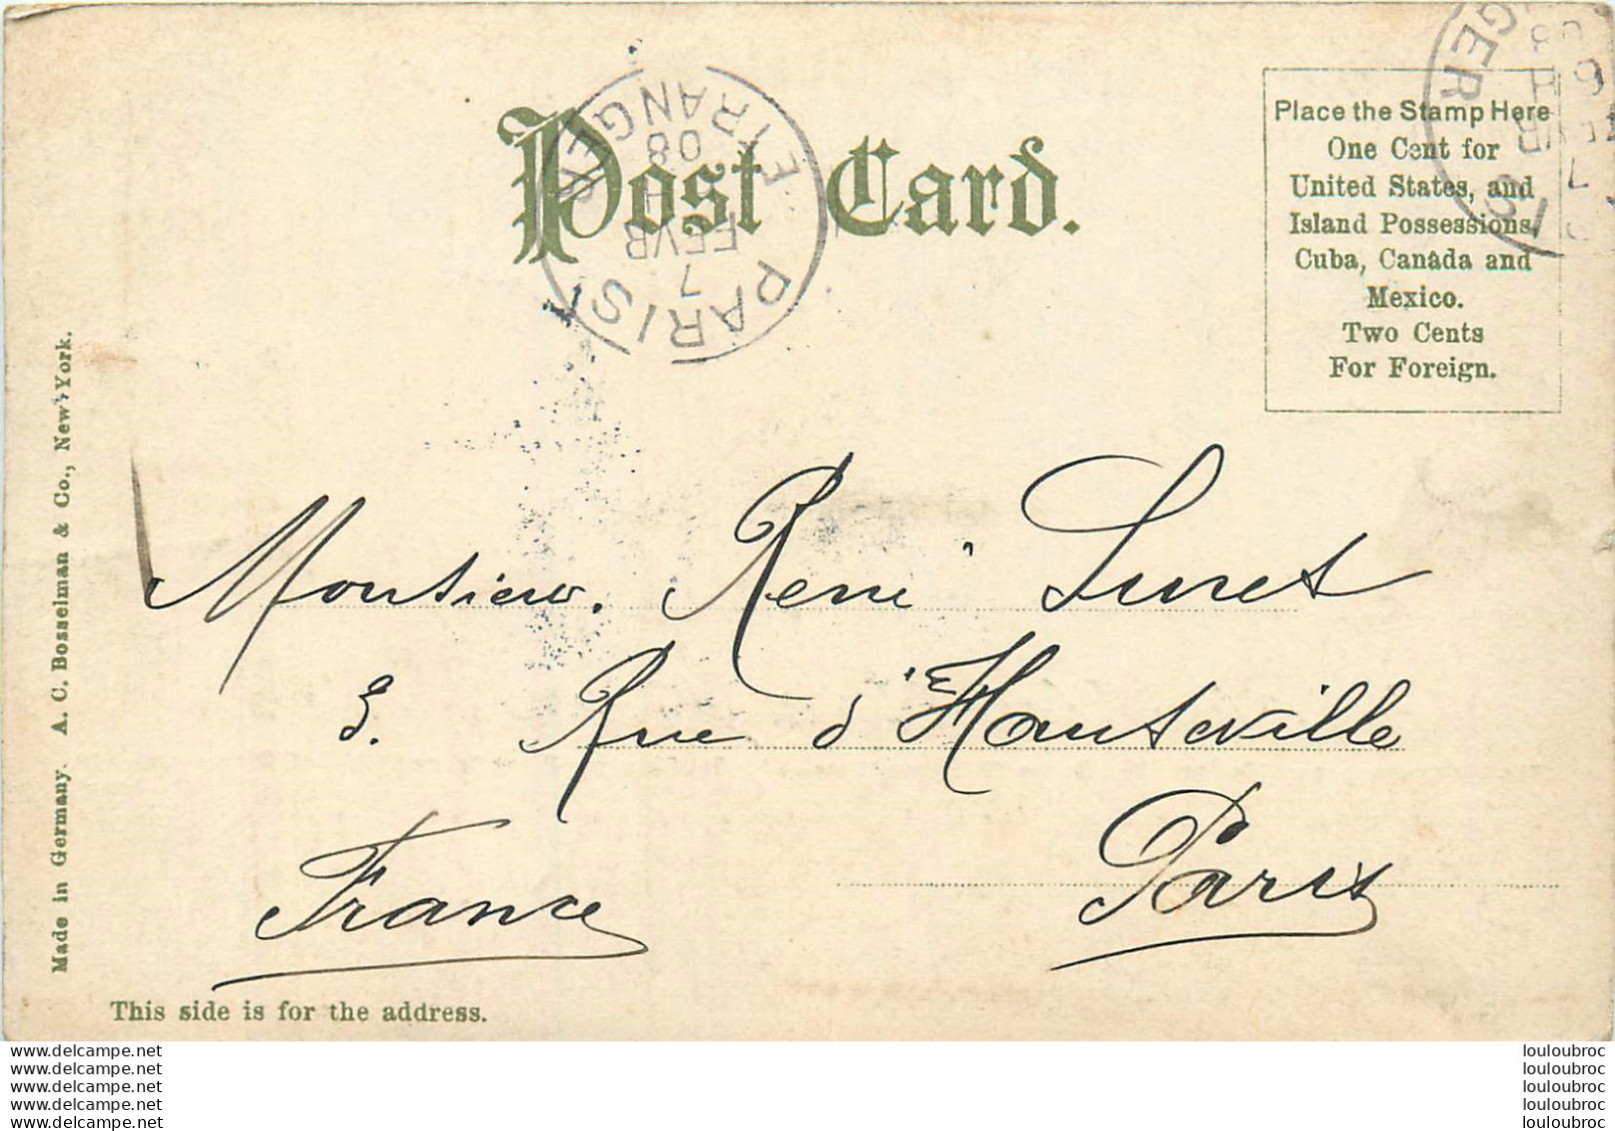 Post Card.
PARIS ETRANGER
7
FEVR
08
GER
Place the Stamp Here
One Cent for
United States, and
Island Possessions,
Cuba, Canada and
Mexico.
Two Cents
For Foreign.
Made in Germany. A. C. Bosselman & Co., New York.
Monsieur. René Lunet
3. Rue d'Hauteville
Paris
France
This side is for the address.
www.delcampe.net
www.delcampe.net
www.delcampe.net
www.delcampe.net
www.delcampe.net
louloubroc
louloubroc
louloubroc
louloubroc
louloubroc